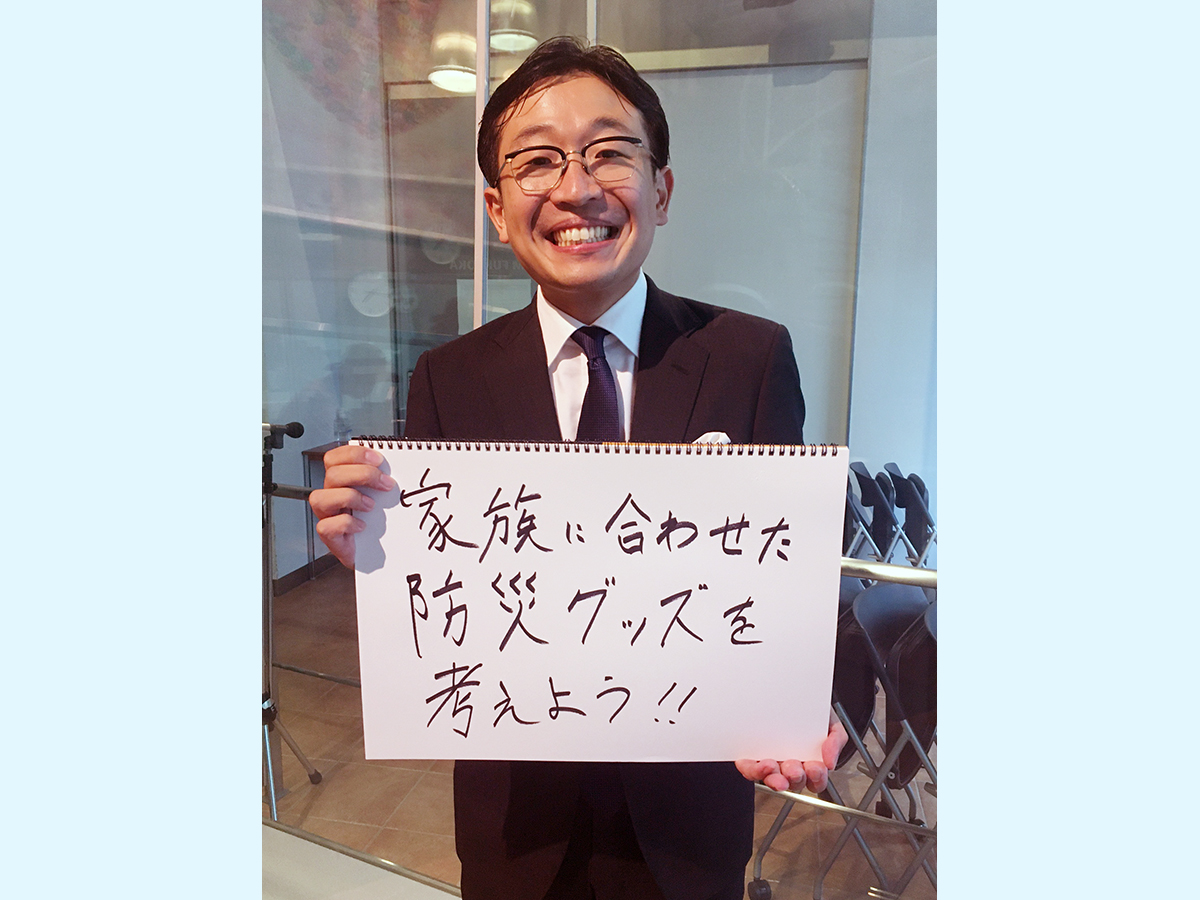 家族に合わせた
防災グッズを
考えよう!!